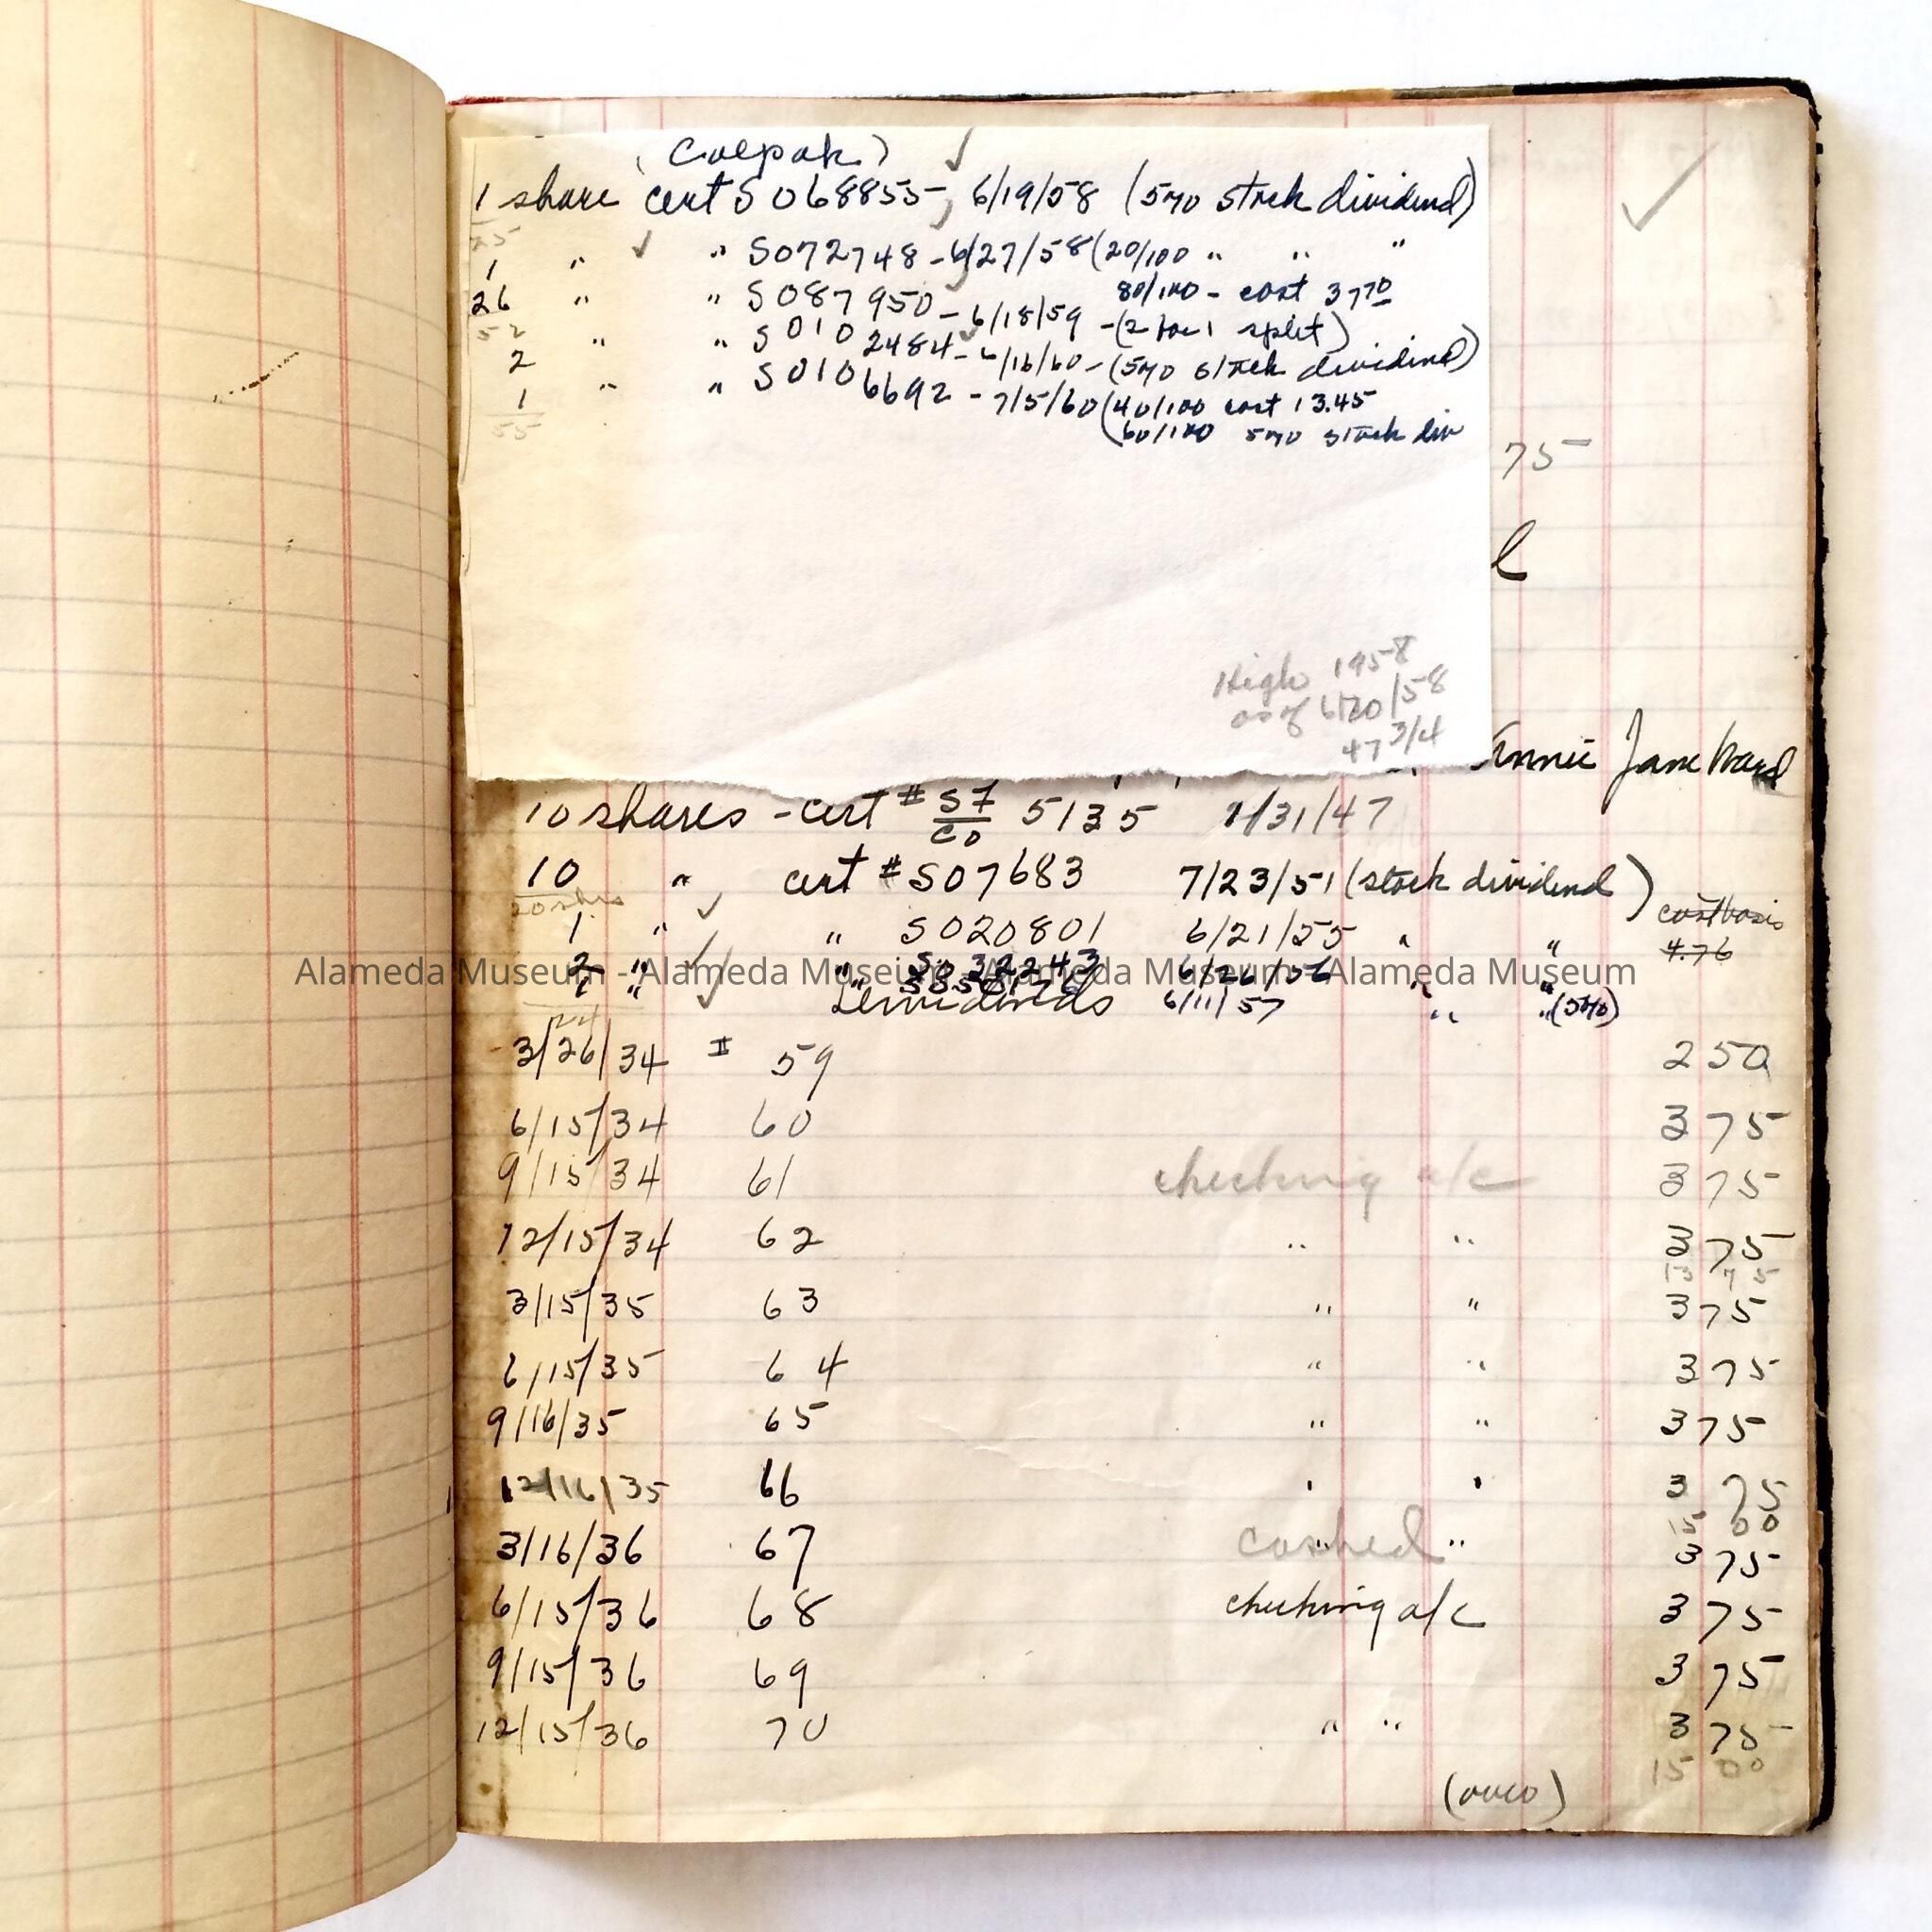 (Calpak)
1 share cert S068855 - 6/19/58 (5% stock dividend)
25
1 " " S072748 - 6/27/58 (20/100 " " "
80/100 - cost 37 70
26 " " S087950 - 6/18/59 - (2 for 1 split)
52
2 " " S0102484 - 6/16/60 - (5% stock dividend)
1 " " S0106692 - 7/5/60 (40/100 cost 13.45
55
(60/100 5% stock div
75
l
High 1958
as of 6/20/58
47 3/4
Annie Jane Ward
10 shares - cert # SF/CO 5135 1/31/47
10 " cert # S07683 7/23/51 (stock dividend)
20 shs
cost basis
1 " " S020801 6/21/55 " "
4.76
2 " " S032243 6/26/56 " "
1 " " 6/11/57 " " (5%)
24
Dividends
3/26/34 # 59 2 50
6/15/34 60 3 75
9/15/34 61 checking a/c 3 75
12/15/34 62 " " 3 75
13 75
3/15/35 63 " " 3 75
6/15/35 64 " " 3 75
9/16/35 65 " " 3 75
12/16/35 66 " " 3 75
15 00
3/16/36 67 cashed " 3 75
6/15/36 68 checking a/c 3 75
9/15/36 69 3 75
12/15/36 70 " " 3 75
15 00
(over)
Alameda Museum - Alameda Museum - Alameda Museum - Alameda Museum